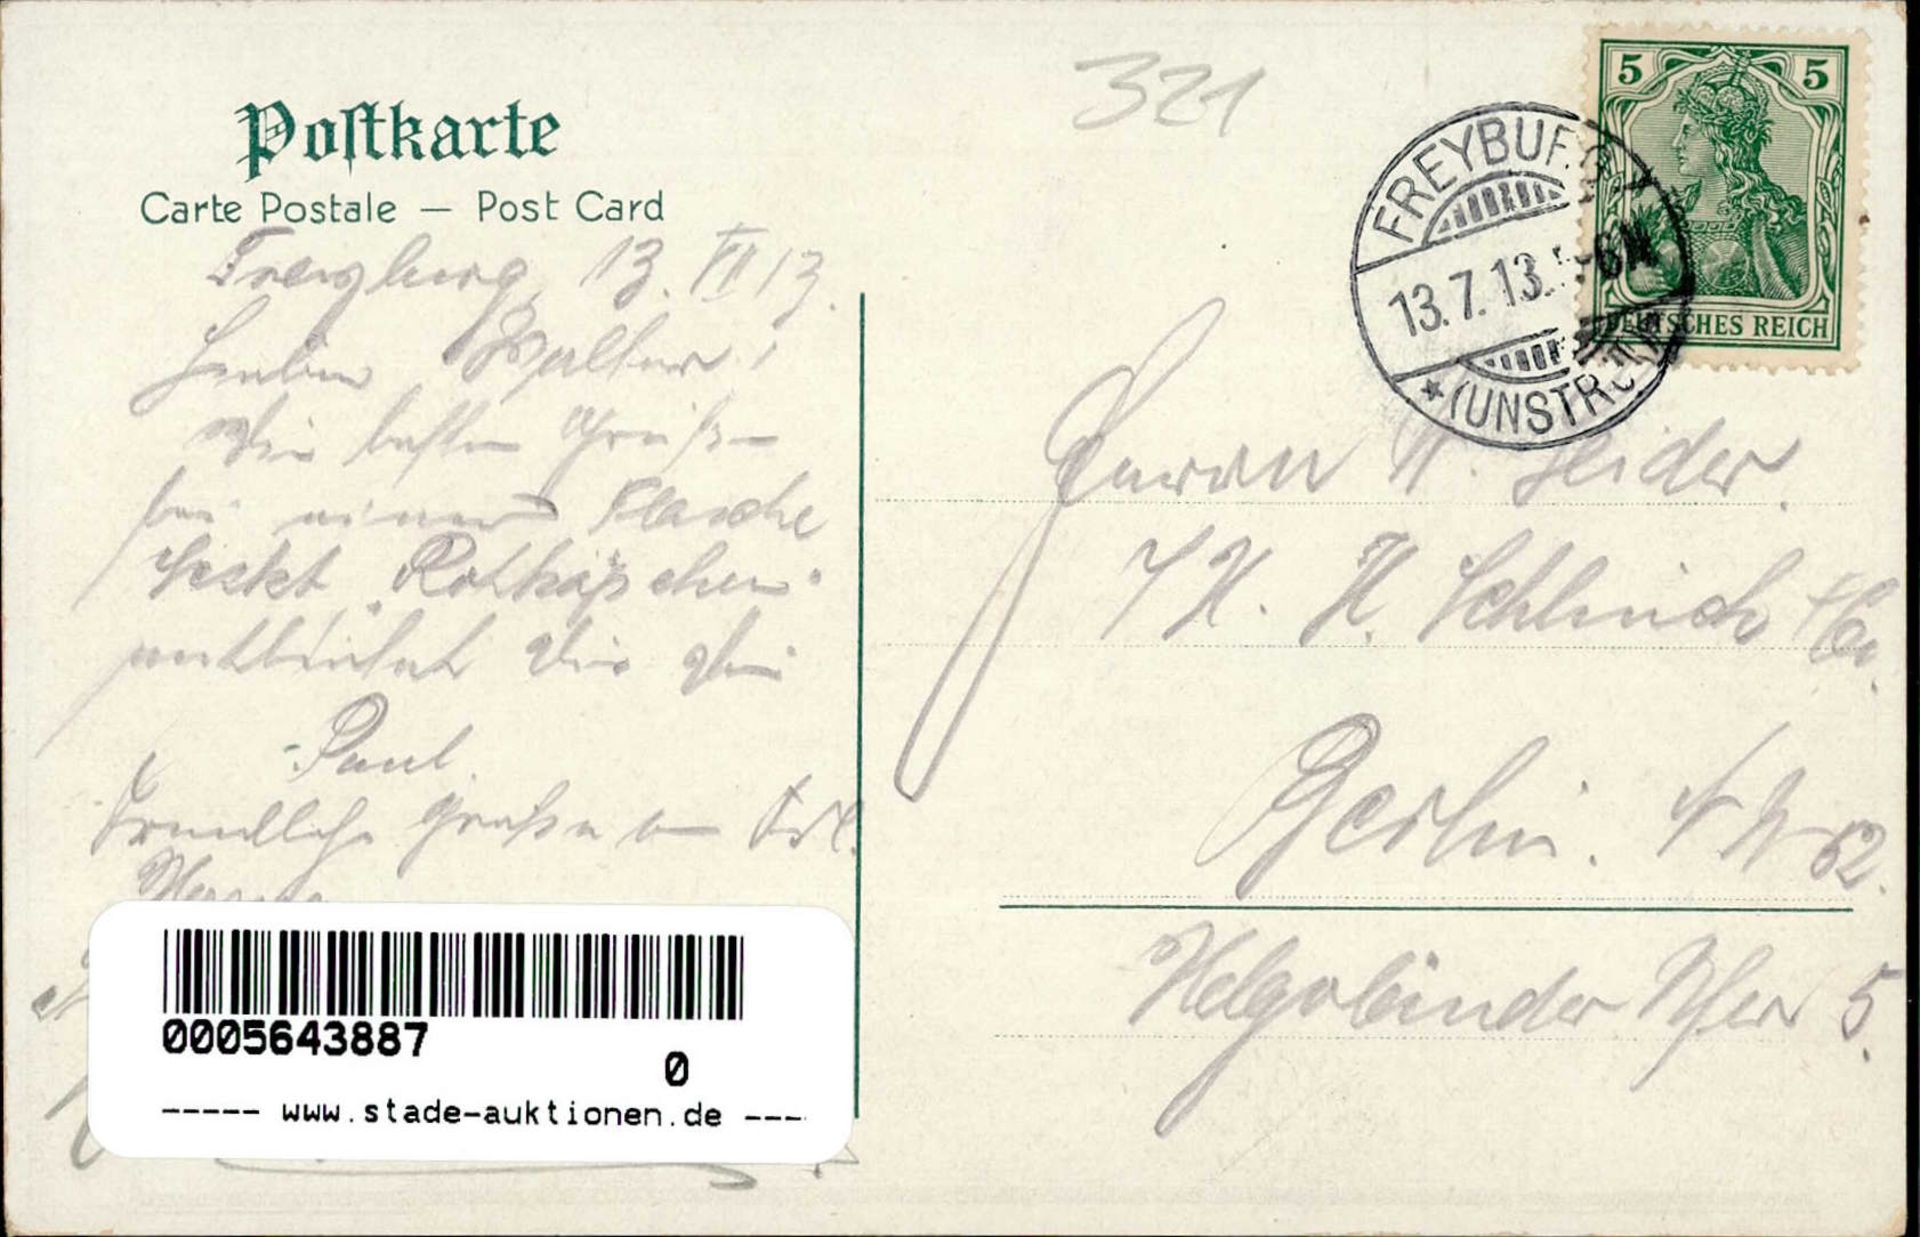 321
Postkarte
Carte Postale — Post Card
5 5
DEUTSCHES REICH
FREYBURG
13.7.13. 5-6N
* (UNSTRUT)
Freyburg, 13. VII 13.
Lieber Walter!
Die besten Grüße
bei einer Flasche
Sekt "Rotkäppchen"
entbietet Dir Dein
Paul.
Freundliche Grüße Frl.
Herrn W.
H. Schlinck & Co.
Berlin. NW 52.
Helgoländer Ufer 5.
0005643887
0
----- www.stade-auktionen.de ---